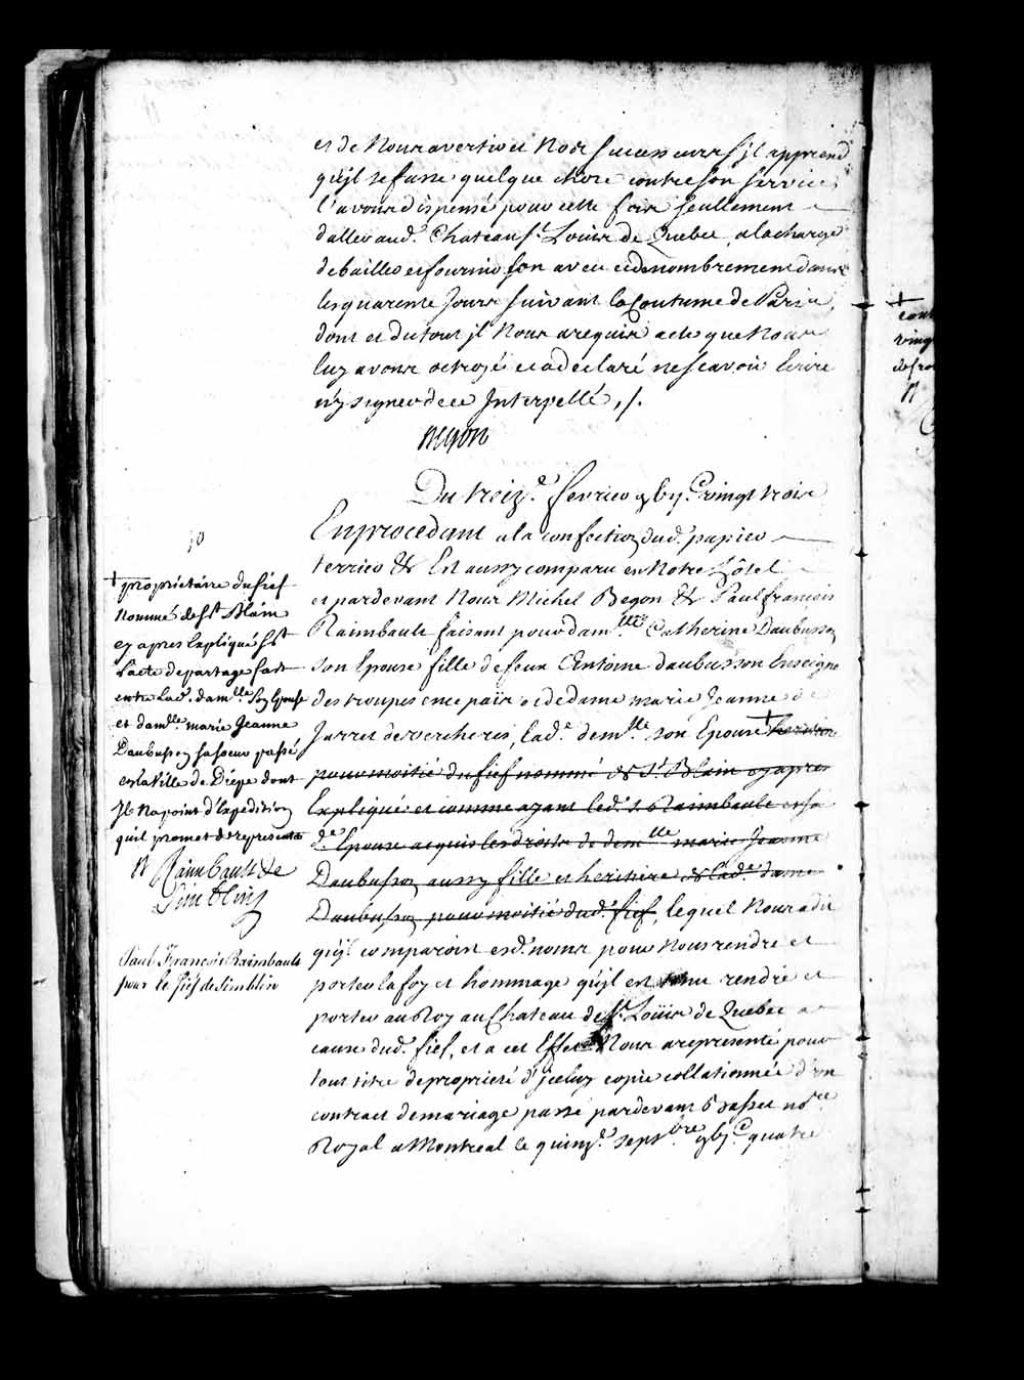 et de nous avertir et nos successeurs s'jl apprend
qu'jl se fasse quelque chose contre son service
l'avons dispensé pour cette fois seullement
d'aller aud.t Chateau S.t Louis de Quebec, a la charge
de bailler et fournir son aveu et denombrement dans
les quarente jours suivant la Coutume de Paris,
dont et du tout jl nous a requis acte que nous
luy avons octroyé et a declaré ne scavoir Ecrire
ny signer de ce Interpellé, /.
Begon
Du treiz.e fevrier gbij.c vingt trois
En procedant a la confection dud. papier
terrier &c Est aussy comparu en Notre hôtel
et pardevant Nous Michel Begon &c Paul françois
Raimbault faisant pour dam.lle Catherine Daubusson
son Epouse fille de feux Antoine daubusson Enseigne
des troupes en ce païs et de dame marie Jeanne de
Jarret de vercheres, lad.e dem.lle son Epouse + heritiere
pour moitié du fief nommé de S.t Blain cy apres
Expliqué et comme ayant led. s. Raimbault et sa
d.e Epouse acquis les droits de dem.lle marie Jeanne
Daubusson aussy fille et heritiere de lad.e dame
Daubusson pour moitié dud. fief, lequel Nous a dit
qu'jl comparoist esd. noms pour Nous rendre et
porter la foy et hommage qu'jl est tenu rendre et
porter au Roy au Chateau de S.t Loüis de Quebec a
cause dud. fief, et a cet Effet Nous a representé pour
tout titre de proprieté d'jceluy copie collationnée d'un
contract de mariage passé pardevant Basset no.re
Royal a Montreal le quinz.e sept.bre gbij.c quatre
10
+ proprietaire du fief
Nommé de S.t Blain
cy apres Expliqué S.t
l'acte de partage fait
entre lad. dam.lle son Epouse
et dam.lle marie Jeanne
Daubusson sa soeur passé
en la Ville de Diepe dont
Jl Na point d'Expedition
quil promet de representer
Raimbault de
Simblin
Paul François Raimbault
pour le fief de Simblin
+
vingt